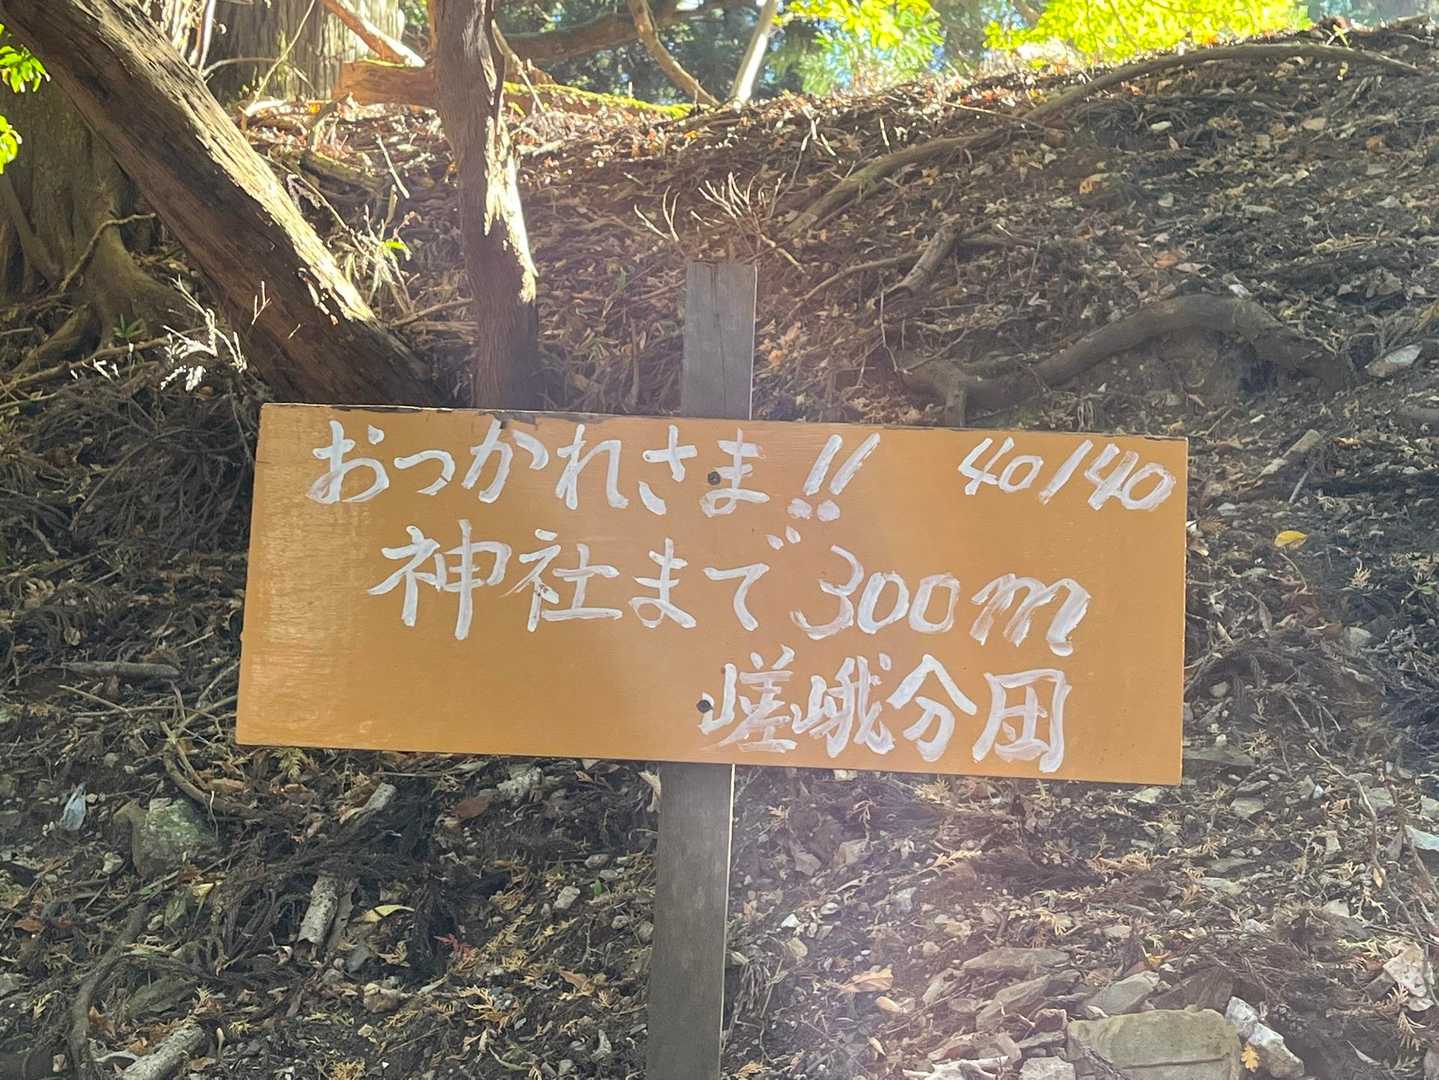 おつかれさま!! 40/40
神社まで300m
嵯峨分団